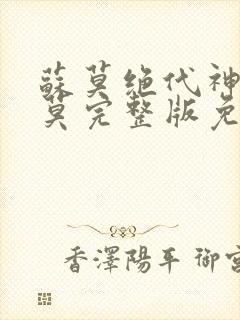 蘇莫绝代神
莫完整版免
香澤陽平 御宮